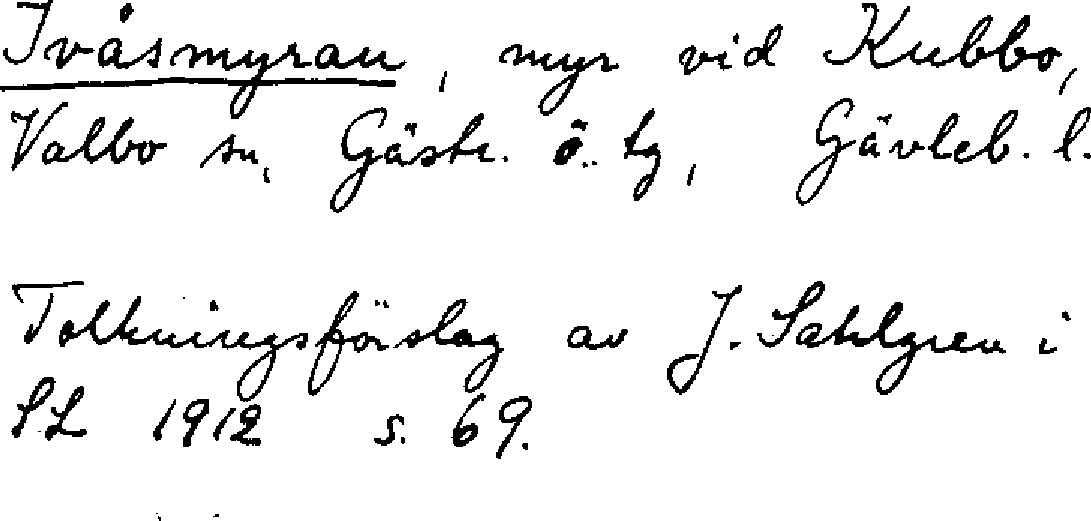 Ivåsmyran, myr vid Kubbo,
Valbo sn, Gästr. ö. tg, Gävleb. l.
Tolkningsförslag av J. Sahlgren i
SL 1912 s. 69.